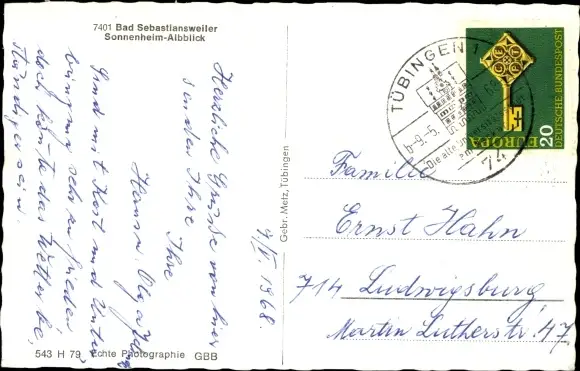 7401 Bad Sebastiansweiler
Sonnenheim-Albblick
Herzliche Grüße von hier
senden Ihre
Ihre
Hanna
9/V 1968.
sind mit Kost und
sehr zufrieden
doch könnte das Wetter be-
ständiger sein.
543 H 79 Echte Photographie GBB
Gebr. Metz, Tübingen
TÜBINGEN 1
-9.-5.
Die alte
74
EUROPA
20
DEUTSCHE BUNDESPOST
Familie
Ernst Hahn
714 Ludwigsburg
Martin Lutherstr. 47